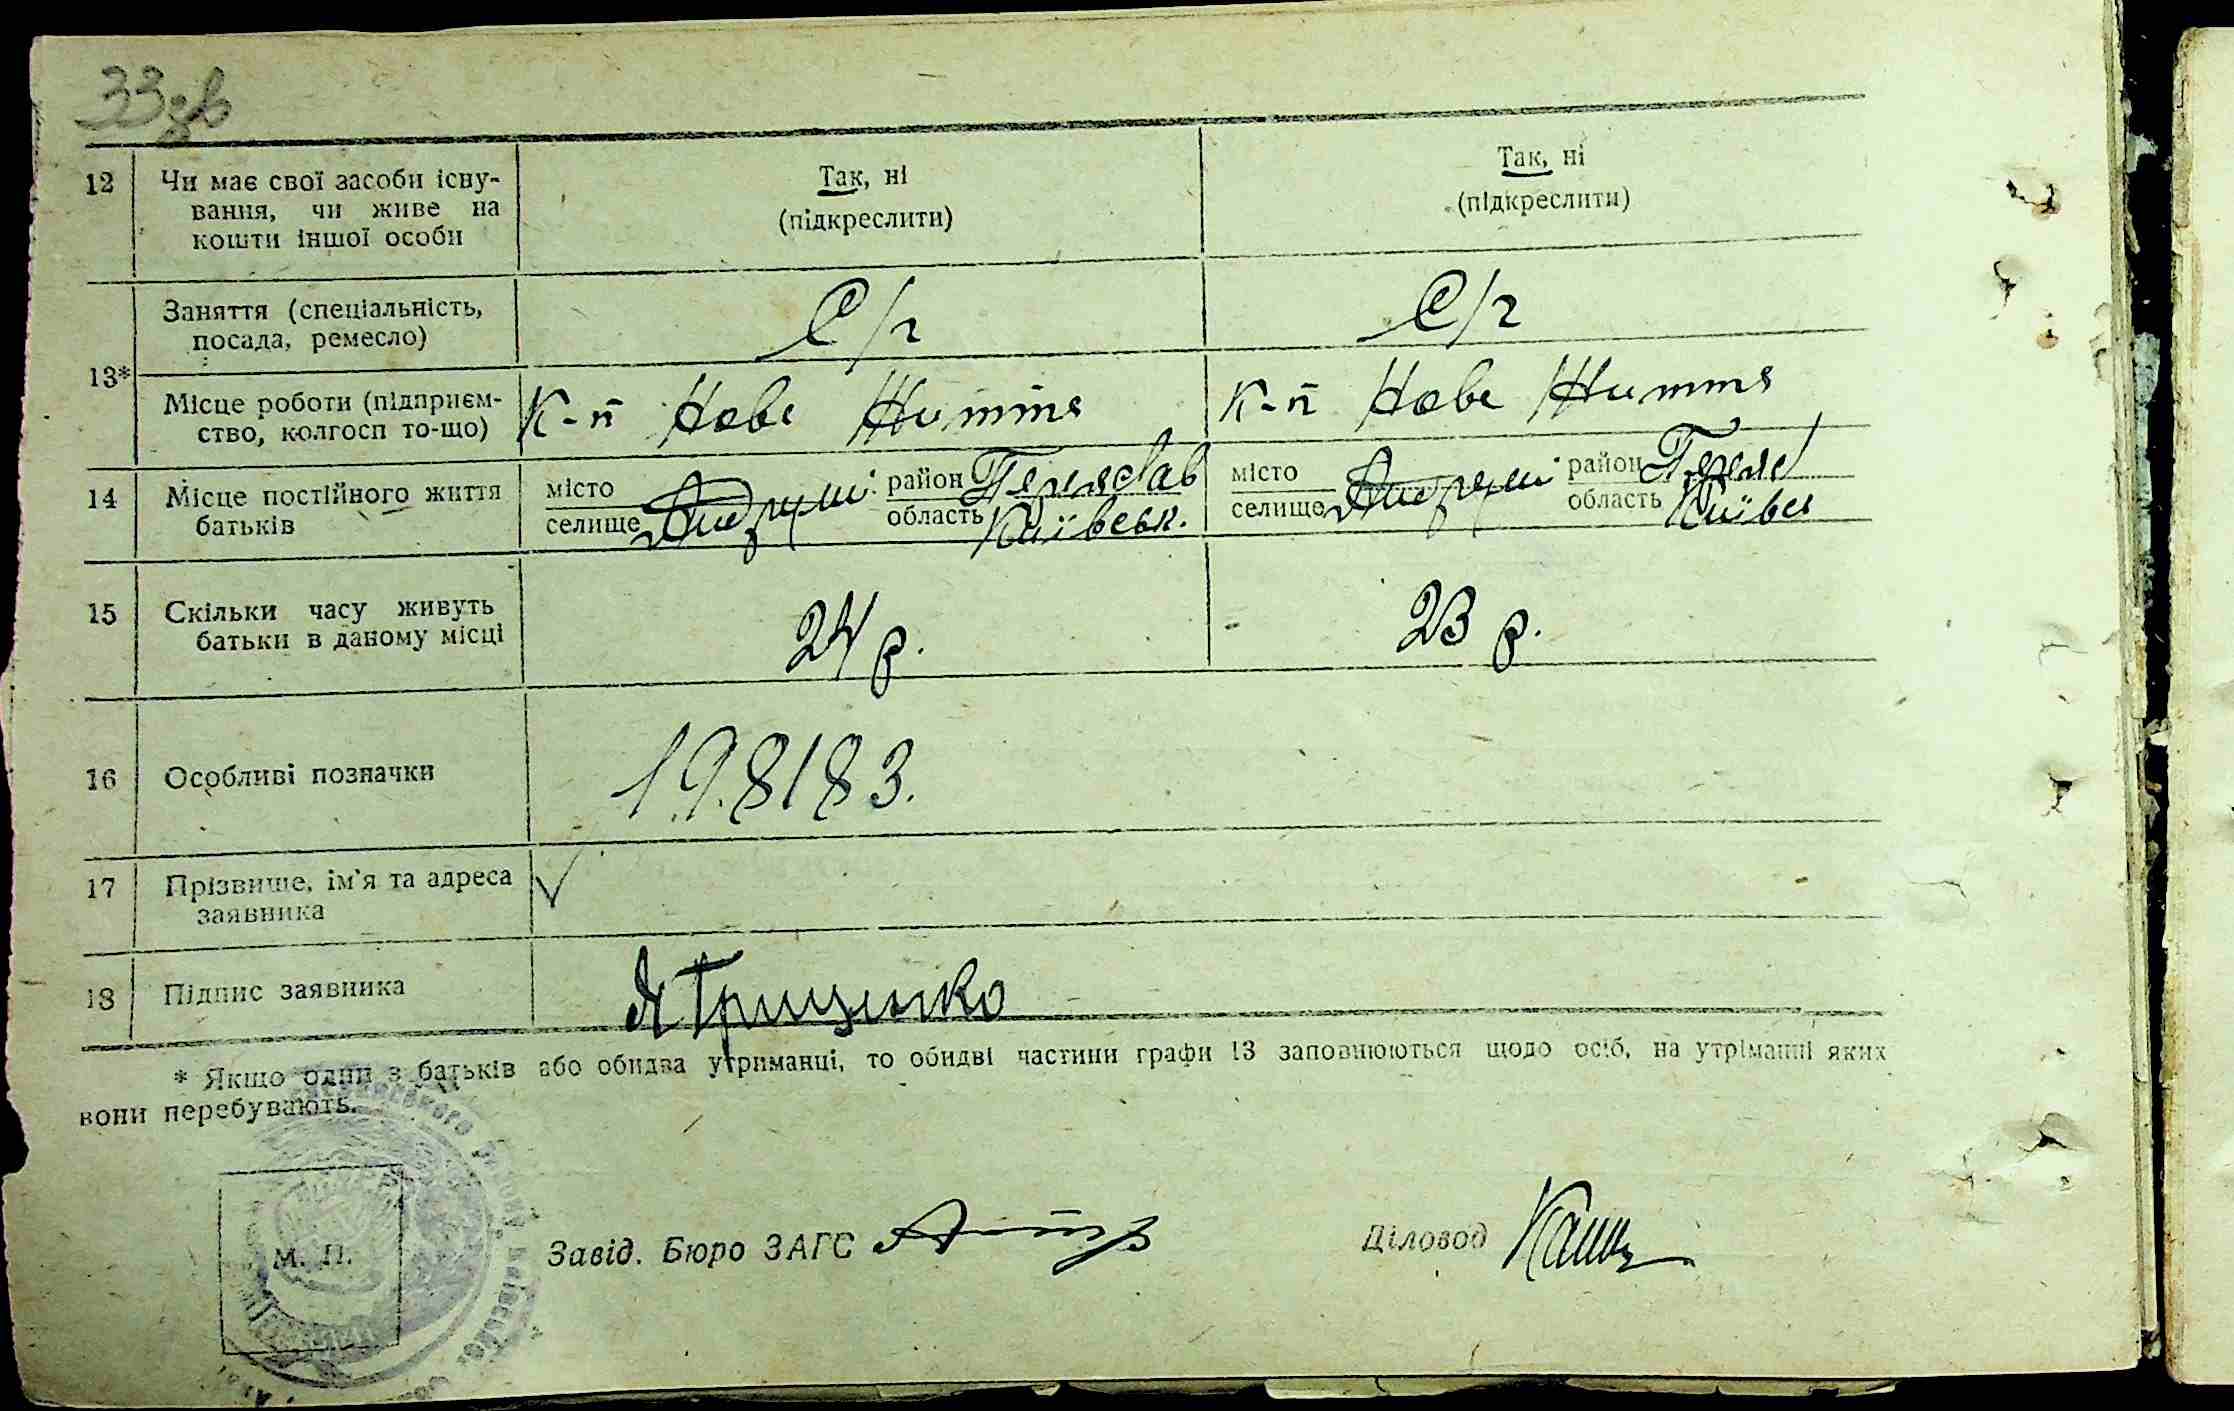 33зв
12 Чи має свої засоби існу- Так, ні Так, ні
вання, чи живе на (підкреслити) (підкреслити)
кошти іншої особи
Заняття (спеціальність, С/г С/г
посада, ремесло)
13*
Місце роботи (підприєм- К-п Нове Життя К-п Нове Життя
ство, колгосп то-що)
14 Місце постійного життя місто Андруші район Переяслав місто Андруші район Переяс
батьків селище область Київськ. селище область Київсь
15 Скільки часу живуть 24 р. 23 р.
батьки в даному місці
16 Особливі позначки 198183.
17 Прізвише, ім'я та адреса
заявника
18 Підпис заявника Я Грищенко
* Якщо один з батьків або обидва утриманці, то обидві частини графи 13 заповнюються щодо осіб, на утріманні яких
вони перебувають.
М. П. Завід. Бюро ЗАГС Діловод